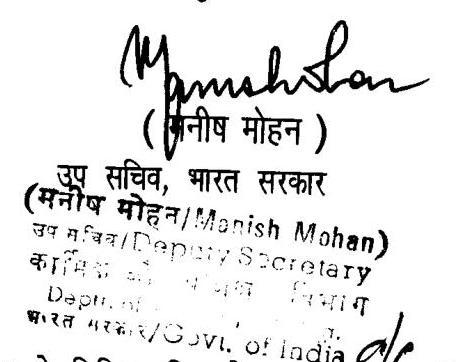 Manish Mohan
( मनीष मोहन )
उप सचिव, भारत सरकार
(मनीष मोहन/Manish Mohan)
उप सचिव/Deputy Secretary
कार्मिक विभाग
Deptt. of
भारत सरकार/Govt. of India